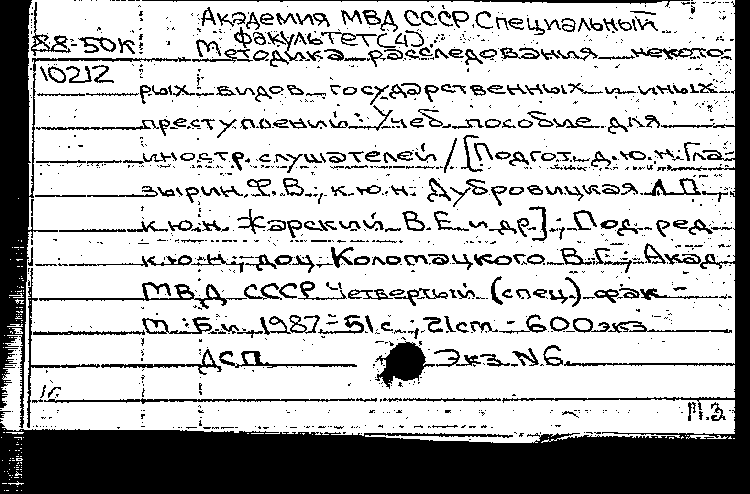 Академия МВД СССР. Специальный
факультет (4)
88-50К
Методика расследования некото-
10212
рых видов государственных и иных
преступлений: Учеб. пособие для
иностр. слушателей / [Подгот. д.ю.н. Гла-
зырин Ф.В., к.ю.н. Дубровицкая Л.П.,
к.ю.н. Жарский В.Е. и др.]; Под ред.
к.ю.н., доц. Коломацкого В.Г.; Акад.
МВД СССР. Четвертый (спец.) фак. -
М.: Б.и., 1987. - 51 с.; 21 cm - 600 экз.
ДСП. Экз. N6.